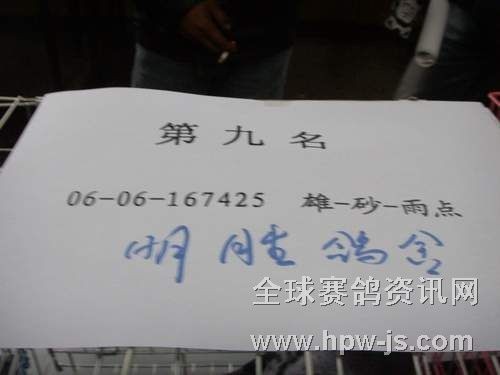 第九名
06-06-167425 雄-砂-雨点
明胜鸽舍
全球赛鸽资讯网
www.hpw-js.com